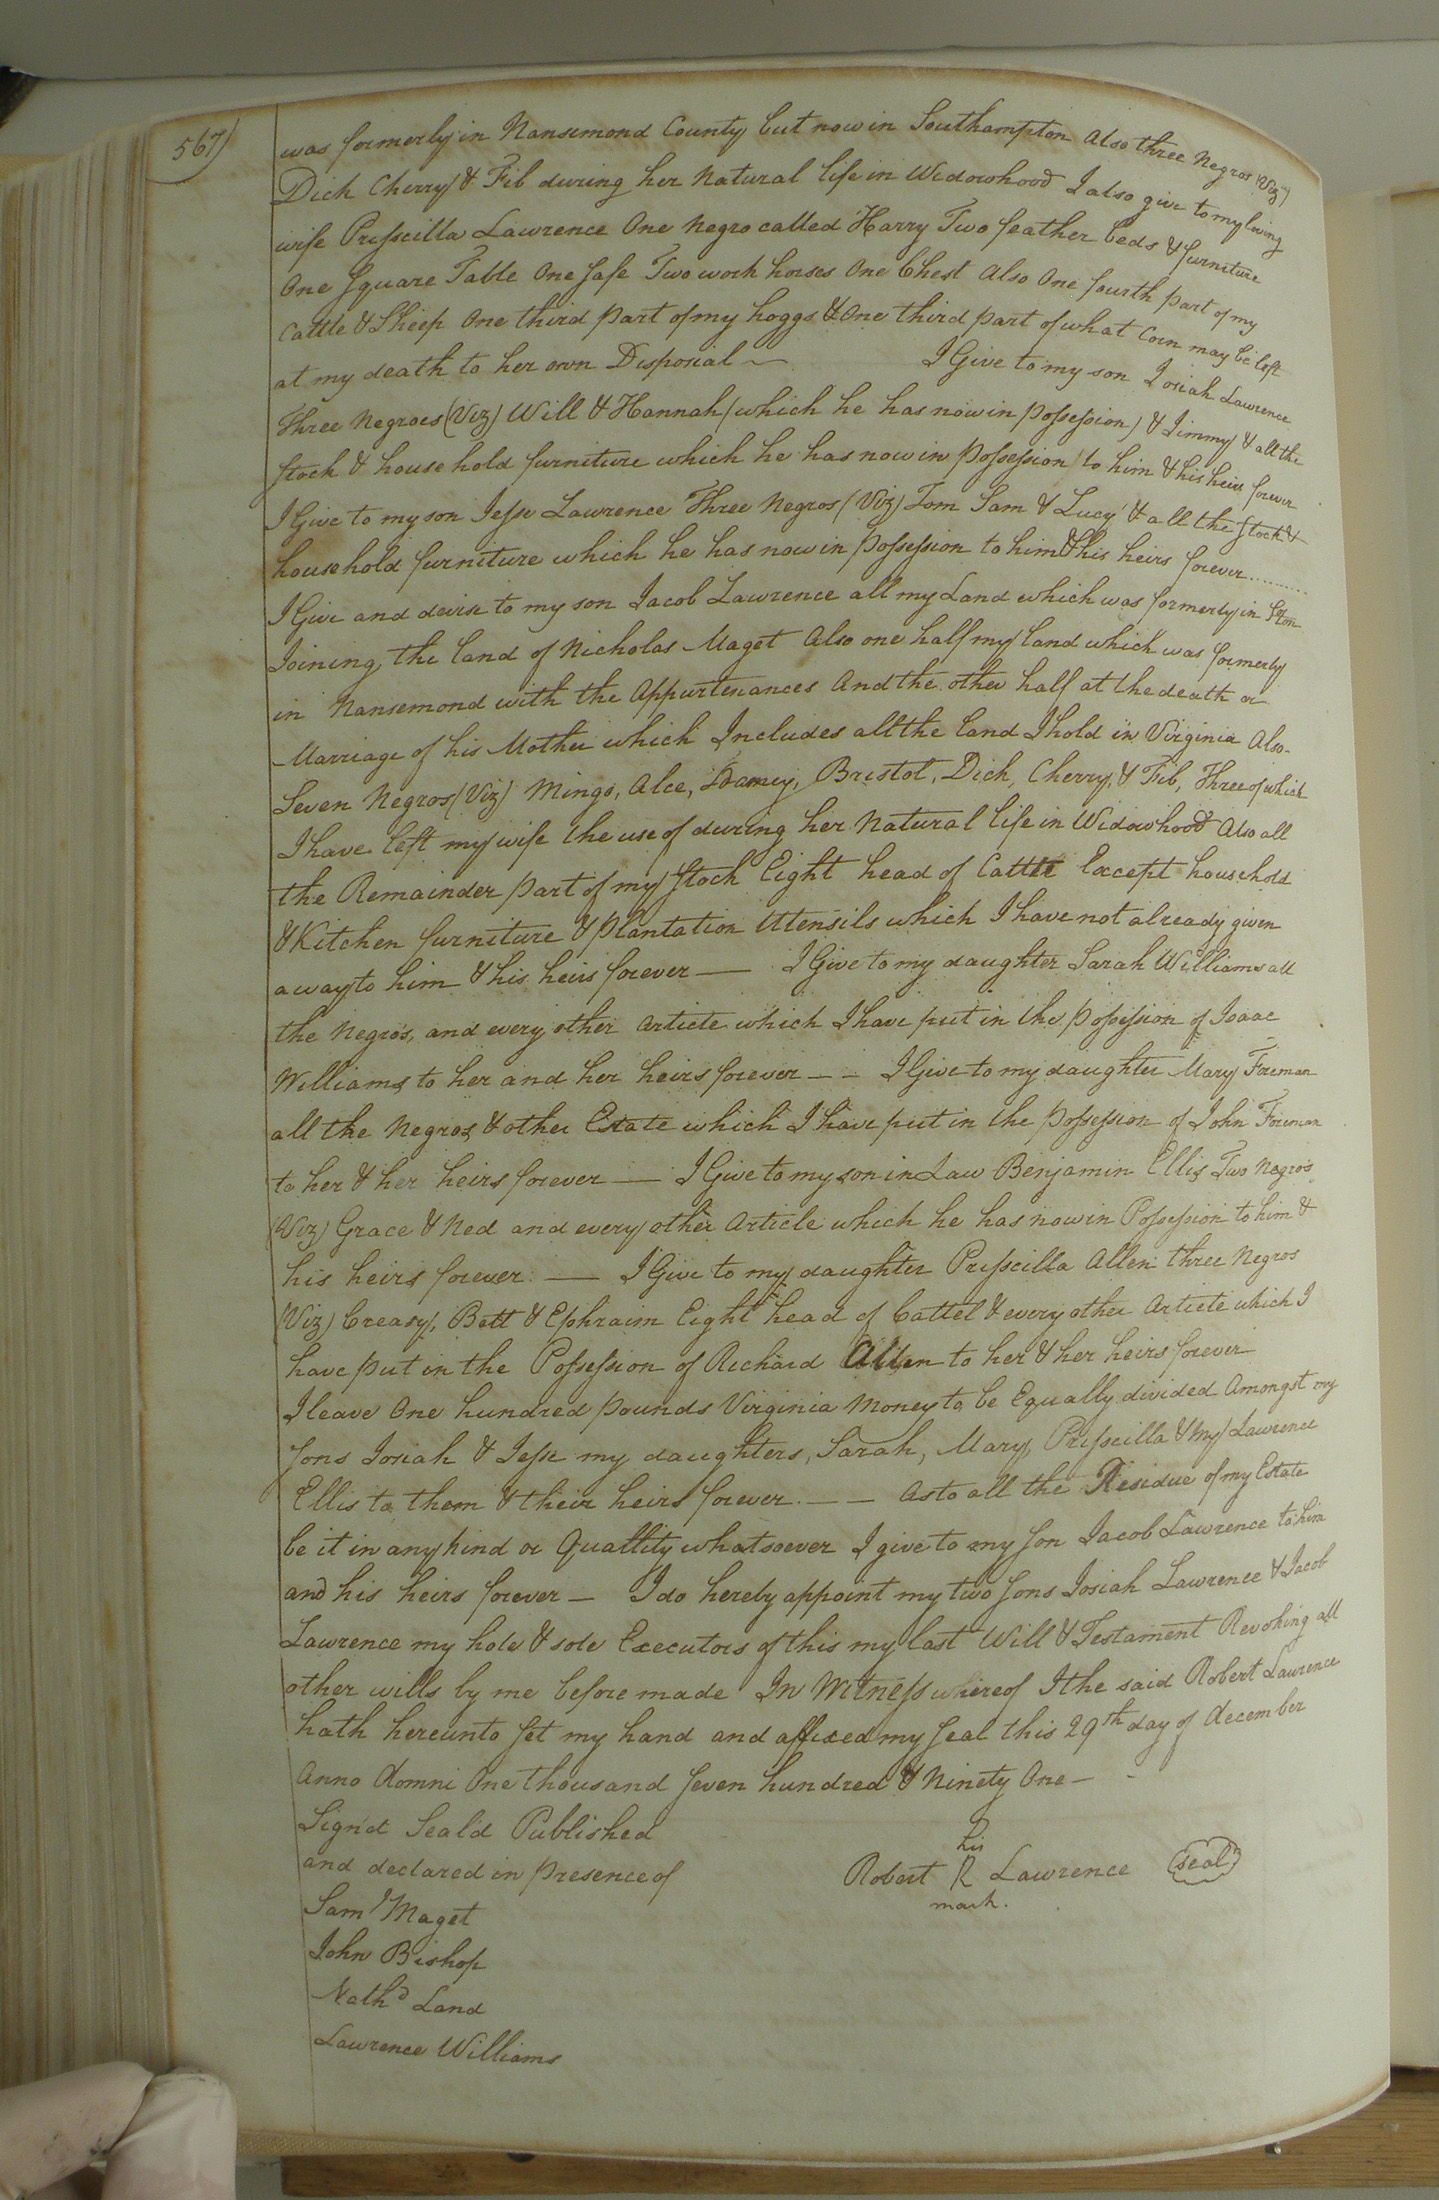 567)
was formerly in Nansemond County but now in Southampton Also three Negros (Viz)
Dick Cherry & Fib during her Natural life in Widowhood I also give to my loving
wife Prisscilla Lawrence One Negro called Harry Two feather beds & furniture
One Square Table One Safe Two work horses One Chest Also One fourth part of my
Cattle & Sheep One third part of my hoggs & One third part of what Corn may be left
at my death to her own Disposial — I Give to my son Josiah Lawrence
Three Negroes (Viz) Will & Hannah (which he has now in possession) & Jimmy & all the
Stock & household furniture which he has now in possession to him & his heirs forever
I Give to my son Jesse Lawrence Three Negros (Viz) Tom Sam & Lucy & all the Stock &
household furniture which he has now in possession to him & his heirs forever........
I Give and devise to my son Jacob Lawrence all my Land which was formerly in Ston
Joining the land of Nicholas Maget Also one half my land which was formerly
in Nansemond with the Appurtenances And the other half at the death or
Marriage of his Mother which Includes all the land I hold in Virginia Also
Seven Negros (Viz) Mingo, Alce, Bristol, Dick, Cherry, & Fib, Three of which
I have left my wife the use of during her Natural life in Widowhood Also all
the Remainder part of my Stock Eight head of Cattle Except household
& Kitchen furniture & plantation Utensils which I have not already given
away to him & his heirs forever — I Give to my daughter Sarah Williams all
the Negros, and every other Article which I have put in the possession of Isaac
Williams to her and her heirs forever — — I Give to my daughter Mary Foreman
all the Negros & other Estate which I have put in the possession of John Foreman
to her & her heirs forever — I Give to my son in Law Benjamin Ellis Two Negros
(Viz) Grace & Ned and every other Article which he has now in Possession to him &
his heirs forever — I Give to my daughter Prisscilla Allen three Negros
(Viz) Creasy, Bett & Ephraim Eight head of Cattel & every other Article which I
have put in the Possession of Richard Allen to her & her heirs forever
I leave One hundred pounds Virginia Money to be Equally divided Amongst my
Sons Josiah & Jesse my daughters, Sarah, Mary, Prisscilla & my Lawrence
Ellis to them & their heirs forever. — — As to all the Residue of my Estate
be it in any kind or Quallity whatsoever I give to my Son Jacob Lawrence to him
and his heirs forever — I do hereby appoint my two Sons Josiah Lawrence & Jacob
Lawrence my hole & sole Executors of this my last Will & Testament Revoking all
other wills by me before made In Witness whereof I the said Robert Lawrence
hath hereunto Set my hand and affixed my Seal this 29th day of December
Anno Domni One thousand Seven hundred & Ninety One —
Sign'd Seal'd Published
and declared in presence of
his
Robert R Lawrence (seal)
mark.
Saml Maget
John Bishop
Nathd Land
Lawrence Williams